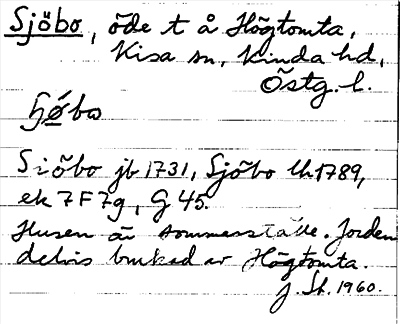 Sjöbo, öde t å Högtomta,
Kisa sn, Kinda hd,
Östg. l.
Siöbo jb 1731, Sjöbo lh 1789,
ek 7F7g, G 45.
Husen är sommarställe. Jorden
delvis brukad av Högtomta.
J. St. 1960.